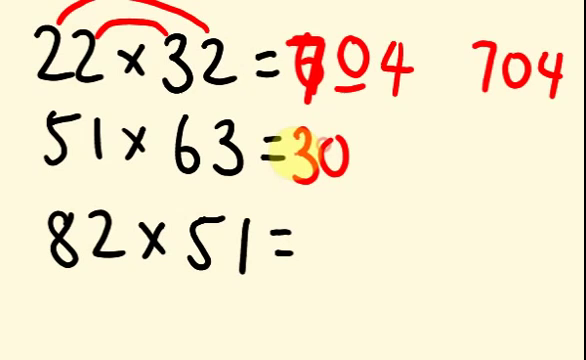 22 × 32 = 704 704
51 × 63 = 30
82 × 51 =